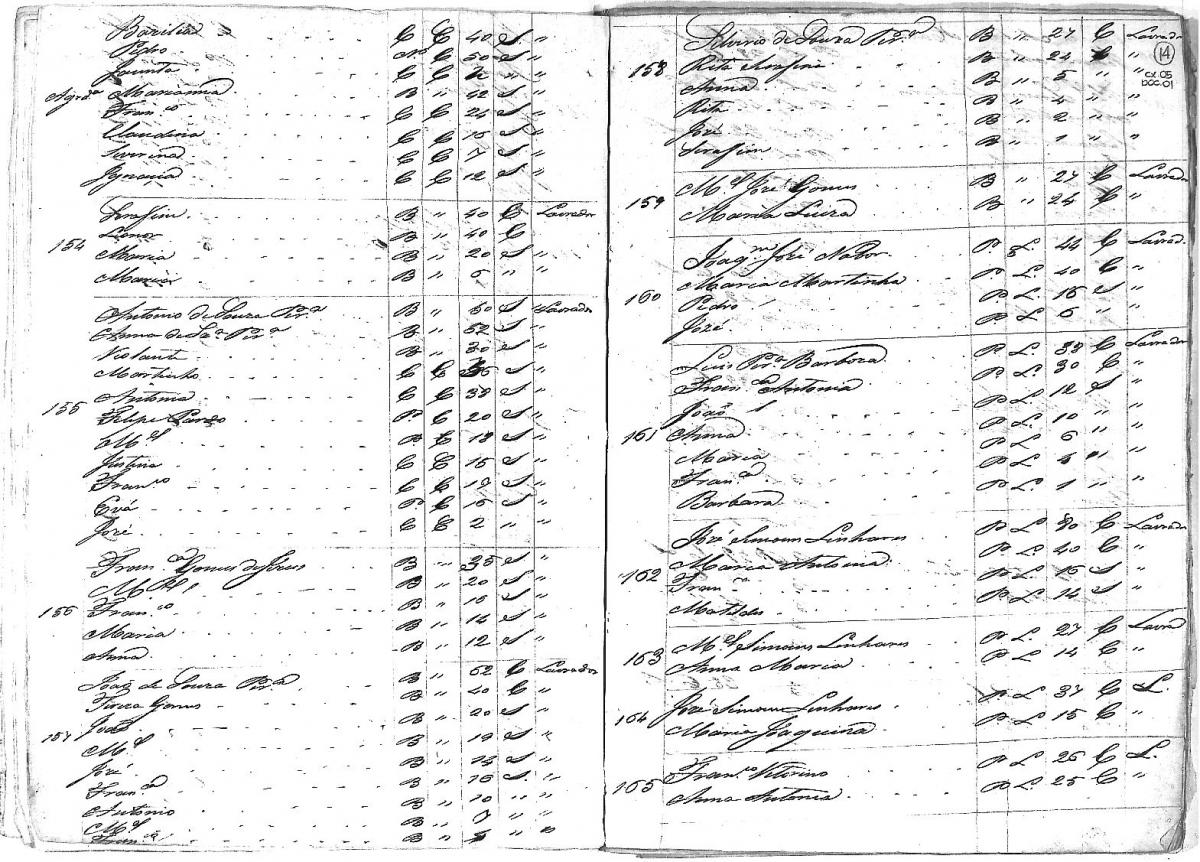 Bazilia C C 40 S "
Pedro N C 50 S "
Jacinta C C " "
Agrª Marianna B " 42 S "
Franco C C 24 S "
Claudina C C 15 S "
C C 7 S "
Ignacia C C 12 S "
Serafim B " 40 C Lavrador
Lionor B " 40 C
154 Maria B " 20 S "
Maria B " 6 " "
Antonio de Souza Pirª B " 60 S Lavrador
Anna de Sª Pirª B " 52 S "
Violante B " 30 S "
Martinho C C 36 S "
Antonia C C 38 S "
155 Felipe Pardo P. C 20 S "
Mel P. C 18 S "
Justina C C 15 S "
Franco C C 19 S "
Evá P. C 15 S "
Jozé C C 2 " "
Franca Gomes de Jesus B " 35 S "
Mel B " 20 S "
156 Franco B " 15 S "
Maria B " 14 S "
Anna B " 12 S "
Joaq de Souza Pirª B " 52 C Lavrador
Tereza Gomes B " 40 C "
João B " 20 S "
157 Mel B " 19 S "
Jozé B " 14 S "
Franca B " 16 S "
Antonio B " 10 " "
Mel B " 7 " "
Franca B " 5 " "
14
cx. 05
DOC. 01
Silverio de Souza Pirª B " 27 C Lavrador
158 Rita Serafina B " 24 C "
Anna B " 5 " "
Rita B " 4 " "
Jozé B " 2 " "
Serafim B " 1 " "
Mel Jozé Gomes B " 27 C Lavrad
159 Maria Luiza B " 24 C "
Joaqm Jozé P. L. 44 C Lavrad.
Maria Martinha P. L. 40 C "
160 Pedro P. L. 16 S "
Jozé P. L. 6 "
Luis Pirª Barboza P. L. 38 C Lavrador
Franca Antonia P. L. 30 C "
João P. L. 12 S "
161 Anna P. L. 10 " "
Maria P. L. 6 " "
Franca P. L. " "
Barbara P. L. 1 " "
Jozé Simoens Linhares P. L. C Lavrador
Maria Antonia P. L. 40 C "
162 Franca P. L. 16 S "
Matildes P. L. 14 S "
Mel Simoens Linhares P. L. 27 C Lavrad
163 Anna Maria P. L. 14 C "
Jozé Simoens Linhares P. L. 37 C L.
164 Maria Joaquina P. L. 15 C "
Franco Vitorino P. L. 26 C L.
165 Anna Antonia P. L. 25 C "